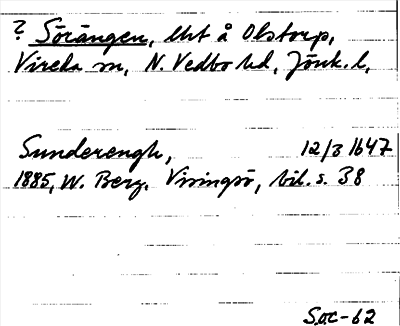 ? Sörängen, lht å Olstorp,
Vireda sn, N. Vedbo hd, Jönk. l,
Sunderengh, 12/3 1647
1885, W. Berg, Visingsö, bil. s. 38
SOC-62